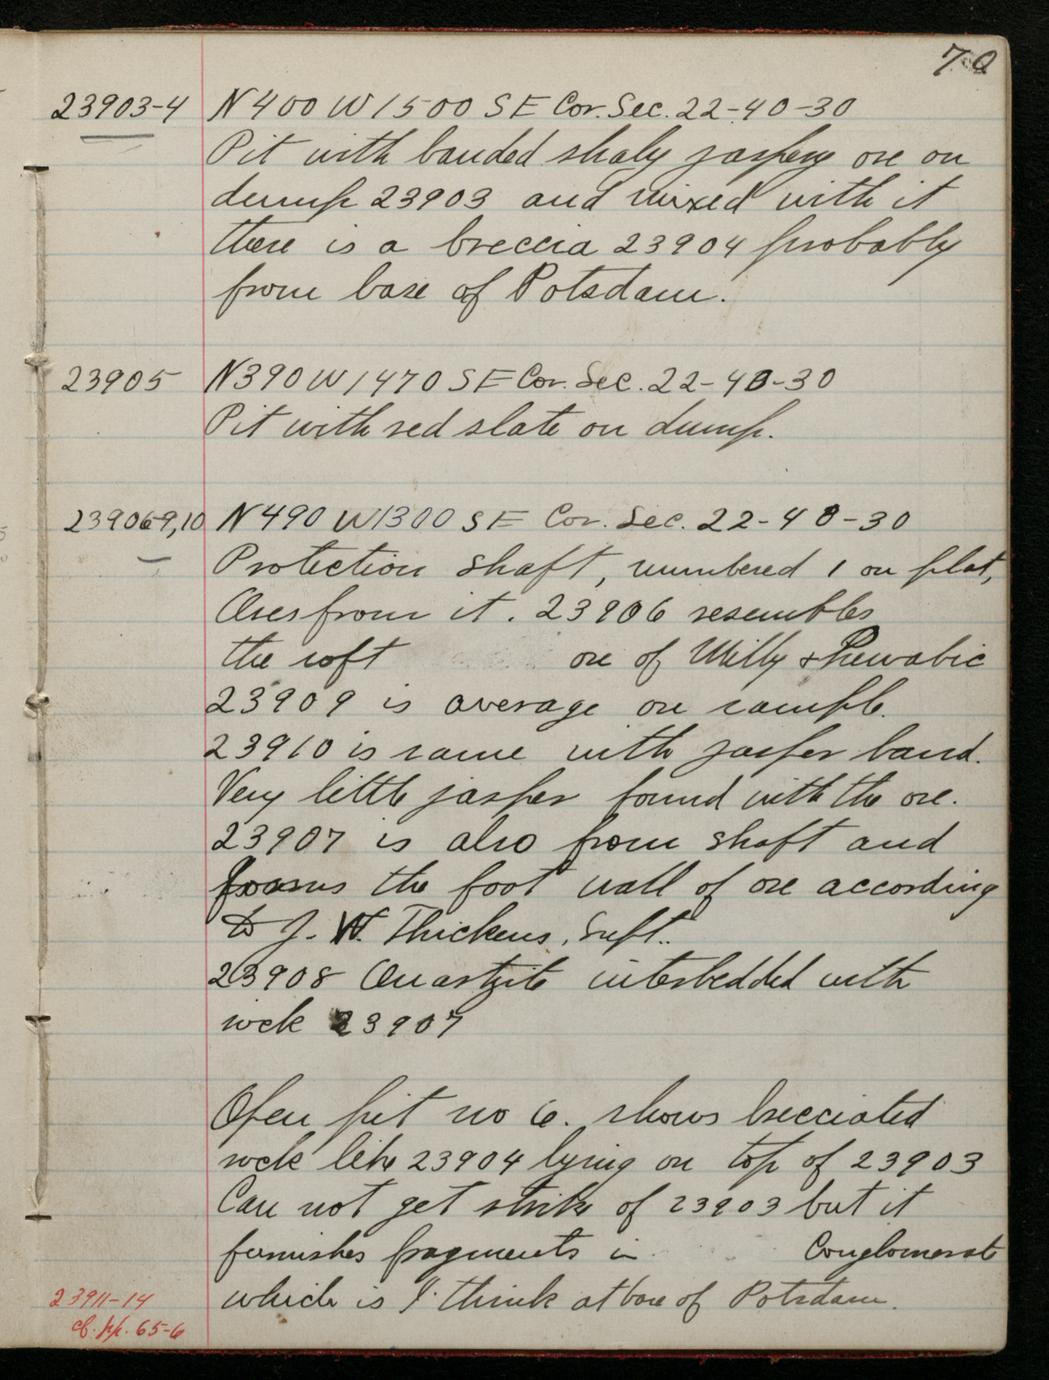 70
23903-4 N 400 W 1500 SE Cor. Sec. 22-40-30
Pit with banded shaly jaspery ore on
dump 23903 and mixed with it
there is a breccia 23904 probably
from base of Potsdam.
23905 N390 W1470 SE Cor. Sec. 22-40-30
Pit with red slate on dump.
239069,10 N490 W1300 SE Cor. Sec. 22-40-30
Protection shaft, numbered 1 on plat,
Ores from it. 23906 resembles
the soft ore of Milly & Pewabic
23909 is average ore sample.
23910 is same with jasper band.
Very little jasper found with the ore.
23907 is also from shaft and
forms the foot wall of ore according
to J. W. Thickens, Supt.
23908 Quartzite interbedded with
rock 23907
Open pit no 6. shows brecciated
rock like 23904 lying on top of 23903
Can not get strike of 23903 but it
furnishes fragments in Conglomerate
which is I think at base of Potsdam.
23911-14
cf. pp. 65-6